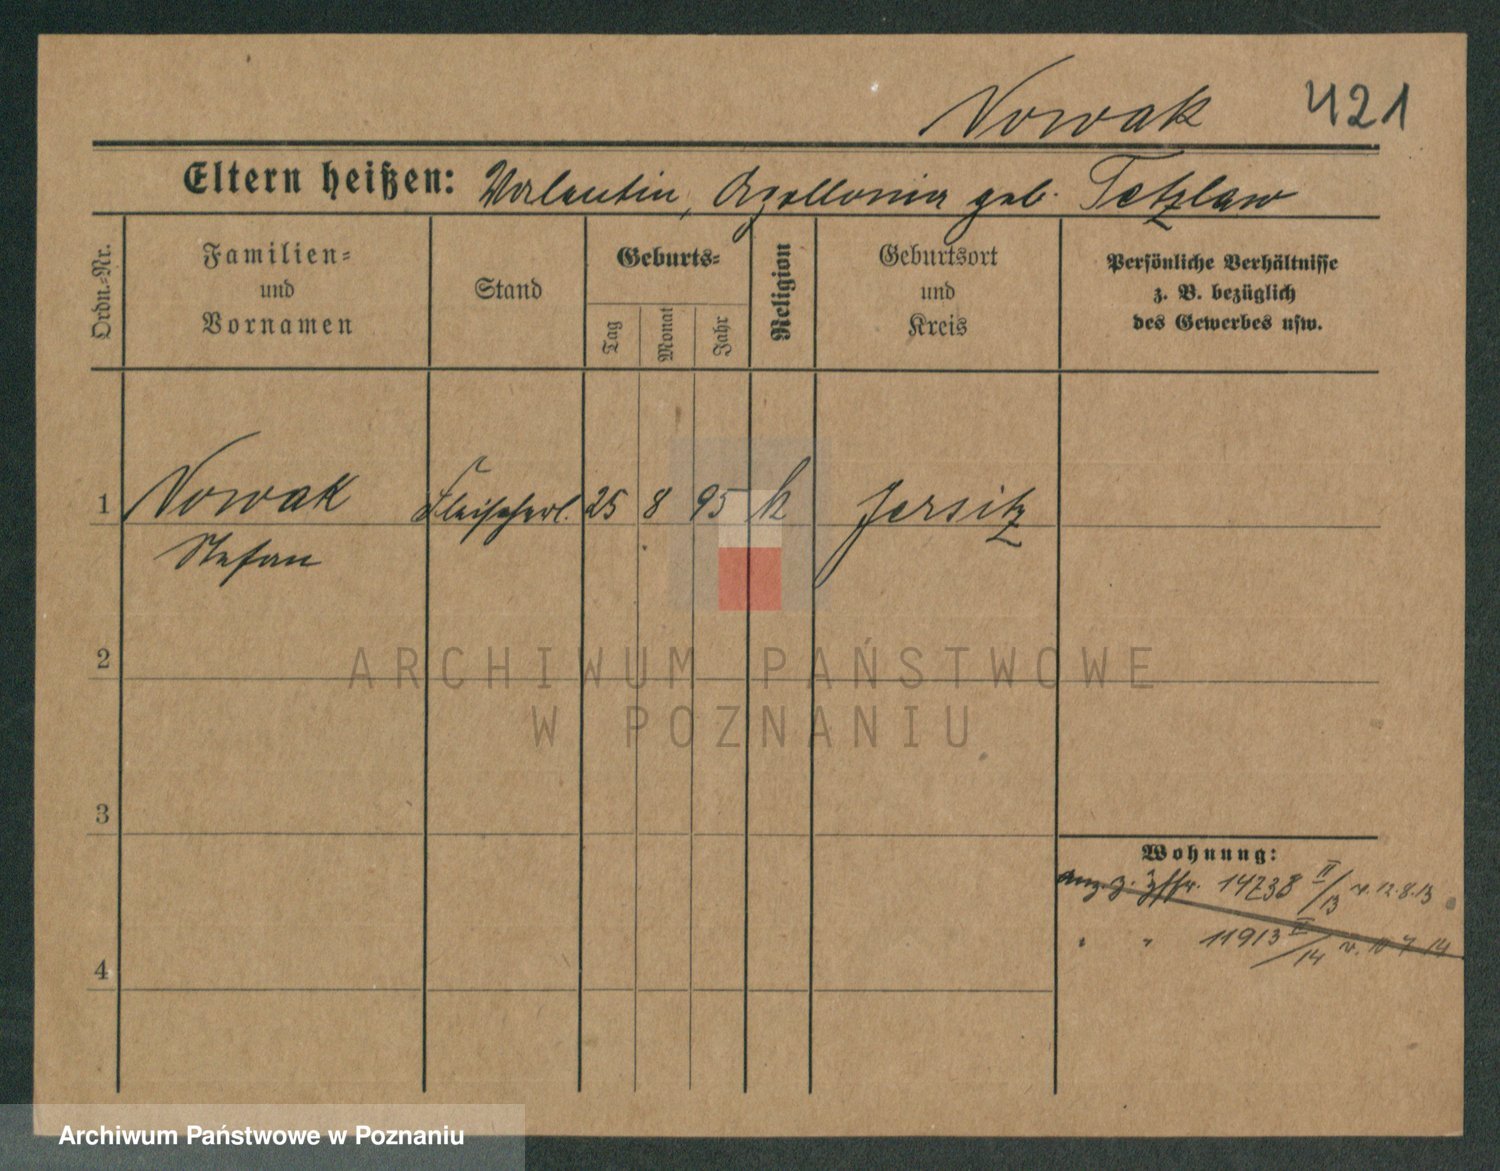 Nowak 421
Eltern heißen: Valentin, Apollonia geb. Tetzlaw
Ordn.-Nr.
Familien-
und
Vornamen
Stand
Geburts-
Tag
Monat
Jahr
Religion
Geburtsort
und
Kreis
Persönliche Verhältnisse
z. B. bezüglich
des Gewerbes usw.
1 Nowak Fleischerl. 25 8 95 k Jersitz
Stefan
2
3
4
Wohnung:
anz. z. 14738 II/13 v. 12.8.13
" " 11913 II/14 v. 10 7 14
ARCHIWUM PAŃSTWOWE
W POZNANIU
Archiwum Państwowe w Poznaniu